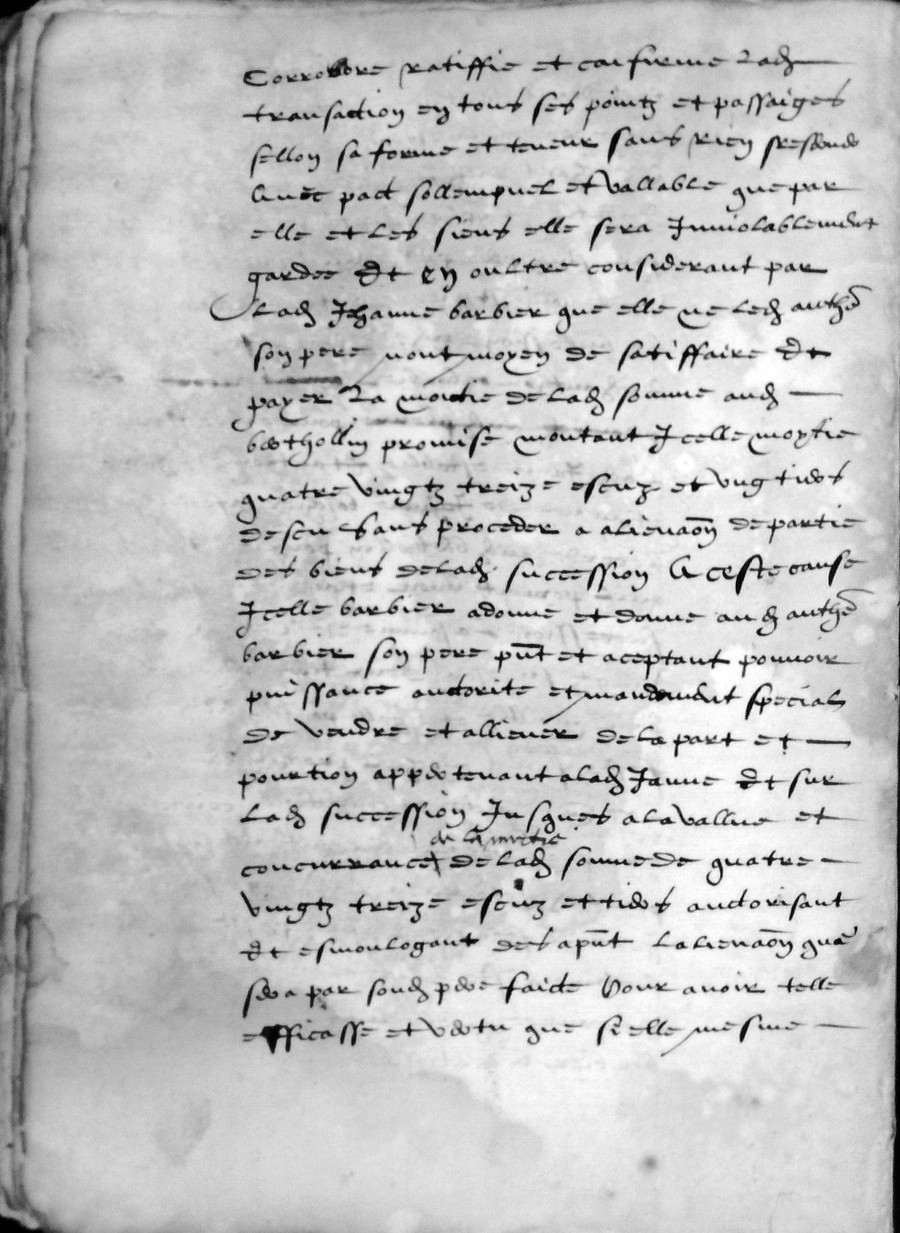 Corrobore ratiffie et confirme lad
transaction en tous ses pointz et passaiges
sellon sa forme et teneur sans rien
Avec pact sollempnel et vallable que par
elle et les siens elle sera Inviolablement
gardee Et En oultre considerant par
lad Jehanne barbier que elle ne led anthe
son pere nont moyen de satiffaire Et
payer La moictie de lad somme aud
berthollin promise montant Icelle moytie
quatre vingtz treize escuz et ung tiers
descu Sans proceder a alienaon de partie
des biens de lad succession A ceste cause
Icelle barbier a donne et donne aud anthe
barbier son pere pnt et aceptant pouvoir
puissance auctorite et mandement special
de vendre et alliener de la part et
pourtion appertenant a lad Janne Et sur
Lad succession Jusques a la vallue et
de la moitie
concurrance de lad somme de quatre
vingtz treize escuz et tiers auctorisant
Et esmoulogant des a pnt lalienaon que
sera par sond pere faicte Pour avoir telle
efficasse et vertu que si elle mesme